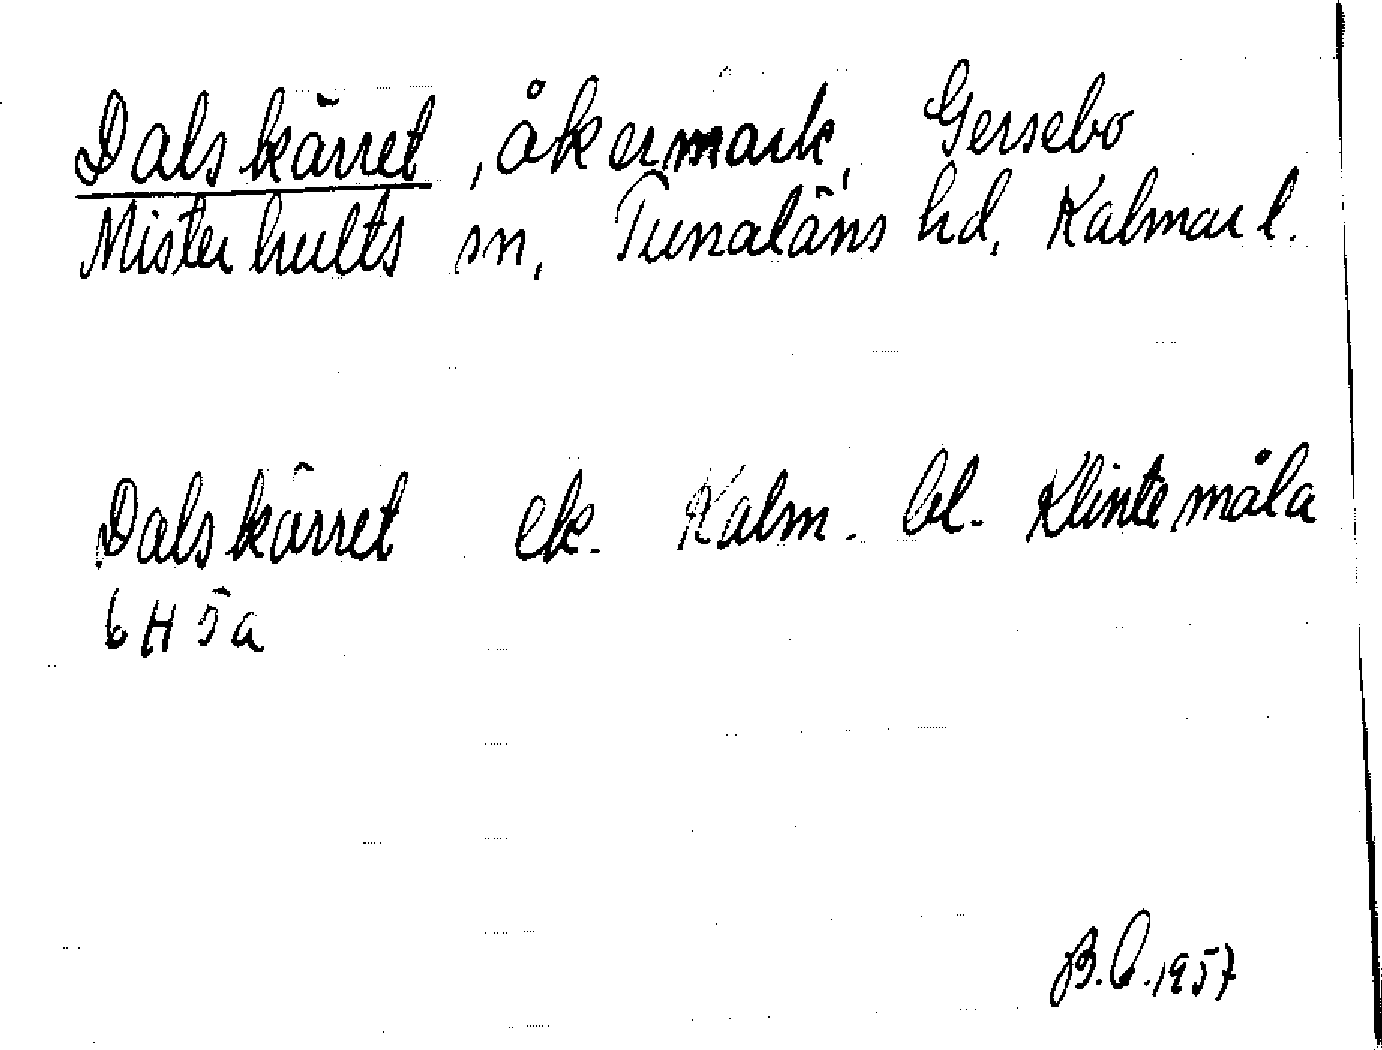 Dalskärret, åkermark, Gersebo
Misterhults sn, Tunaläns hd, Kalmar l.
Dalskärret ek. Kalm. bl. Klintemåla
6 H 5 a
B.O. 1957